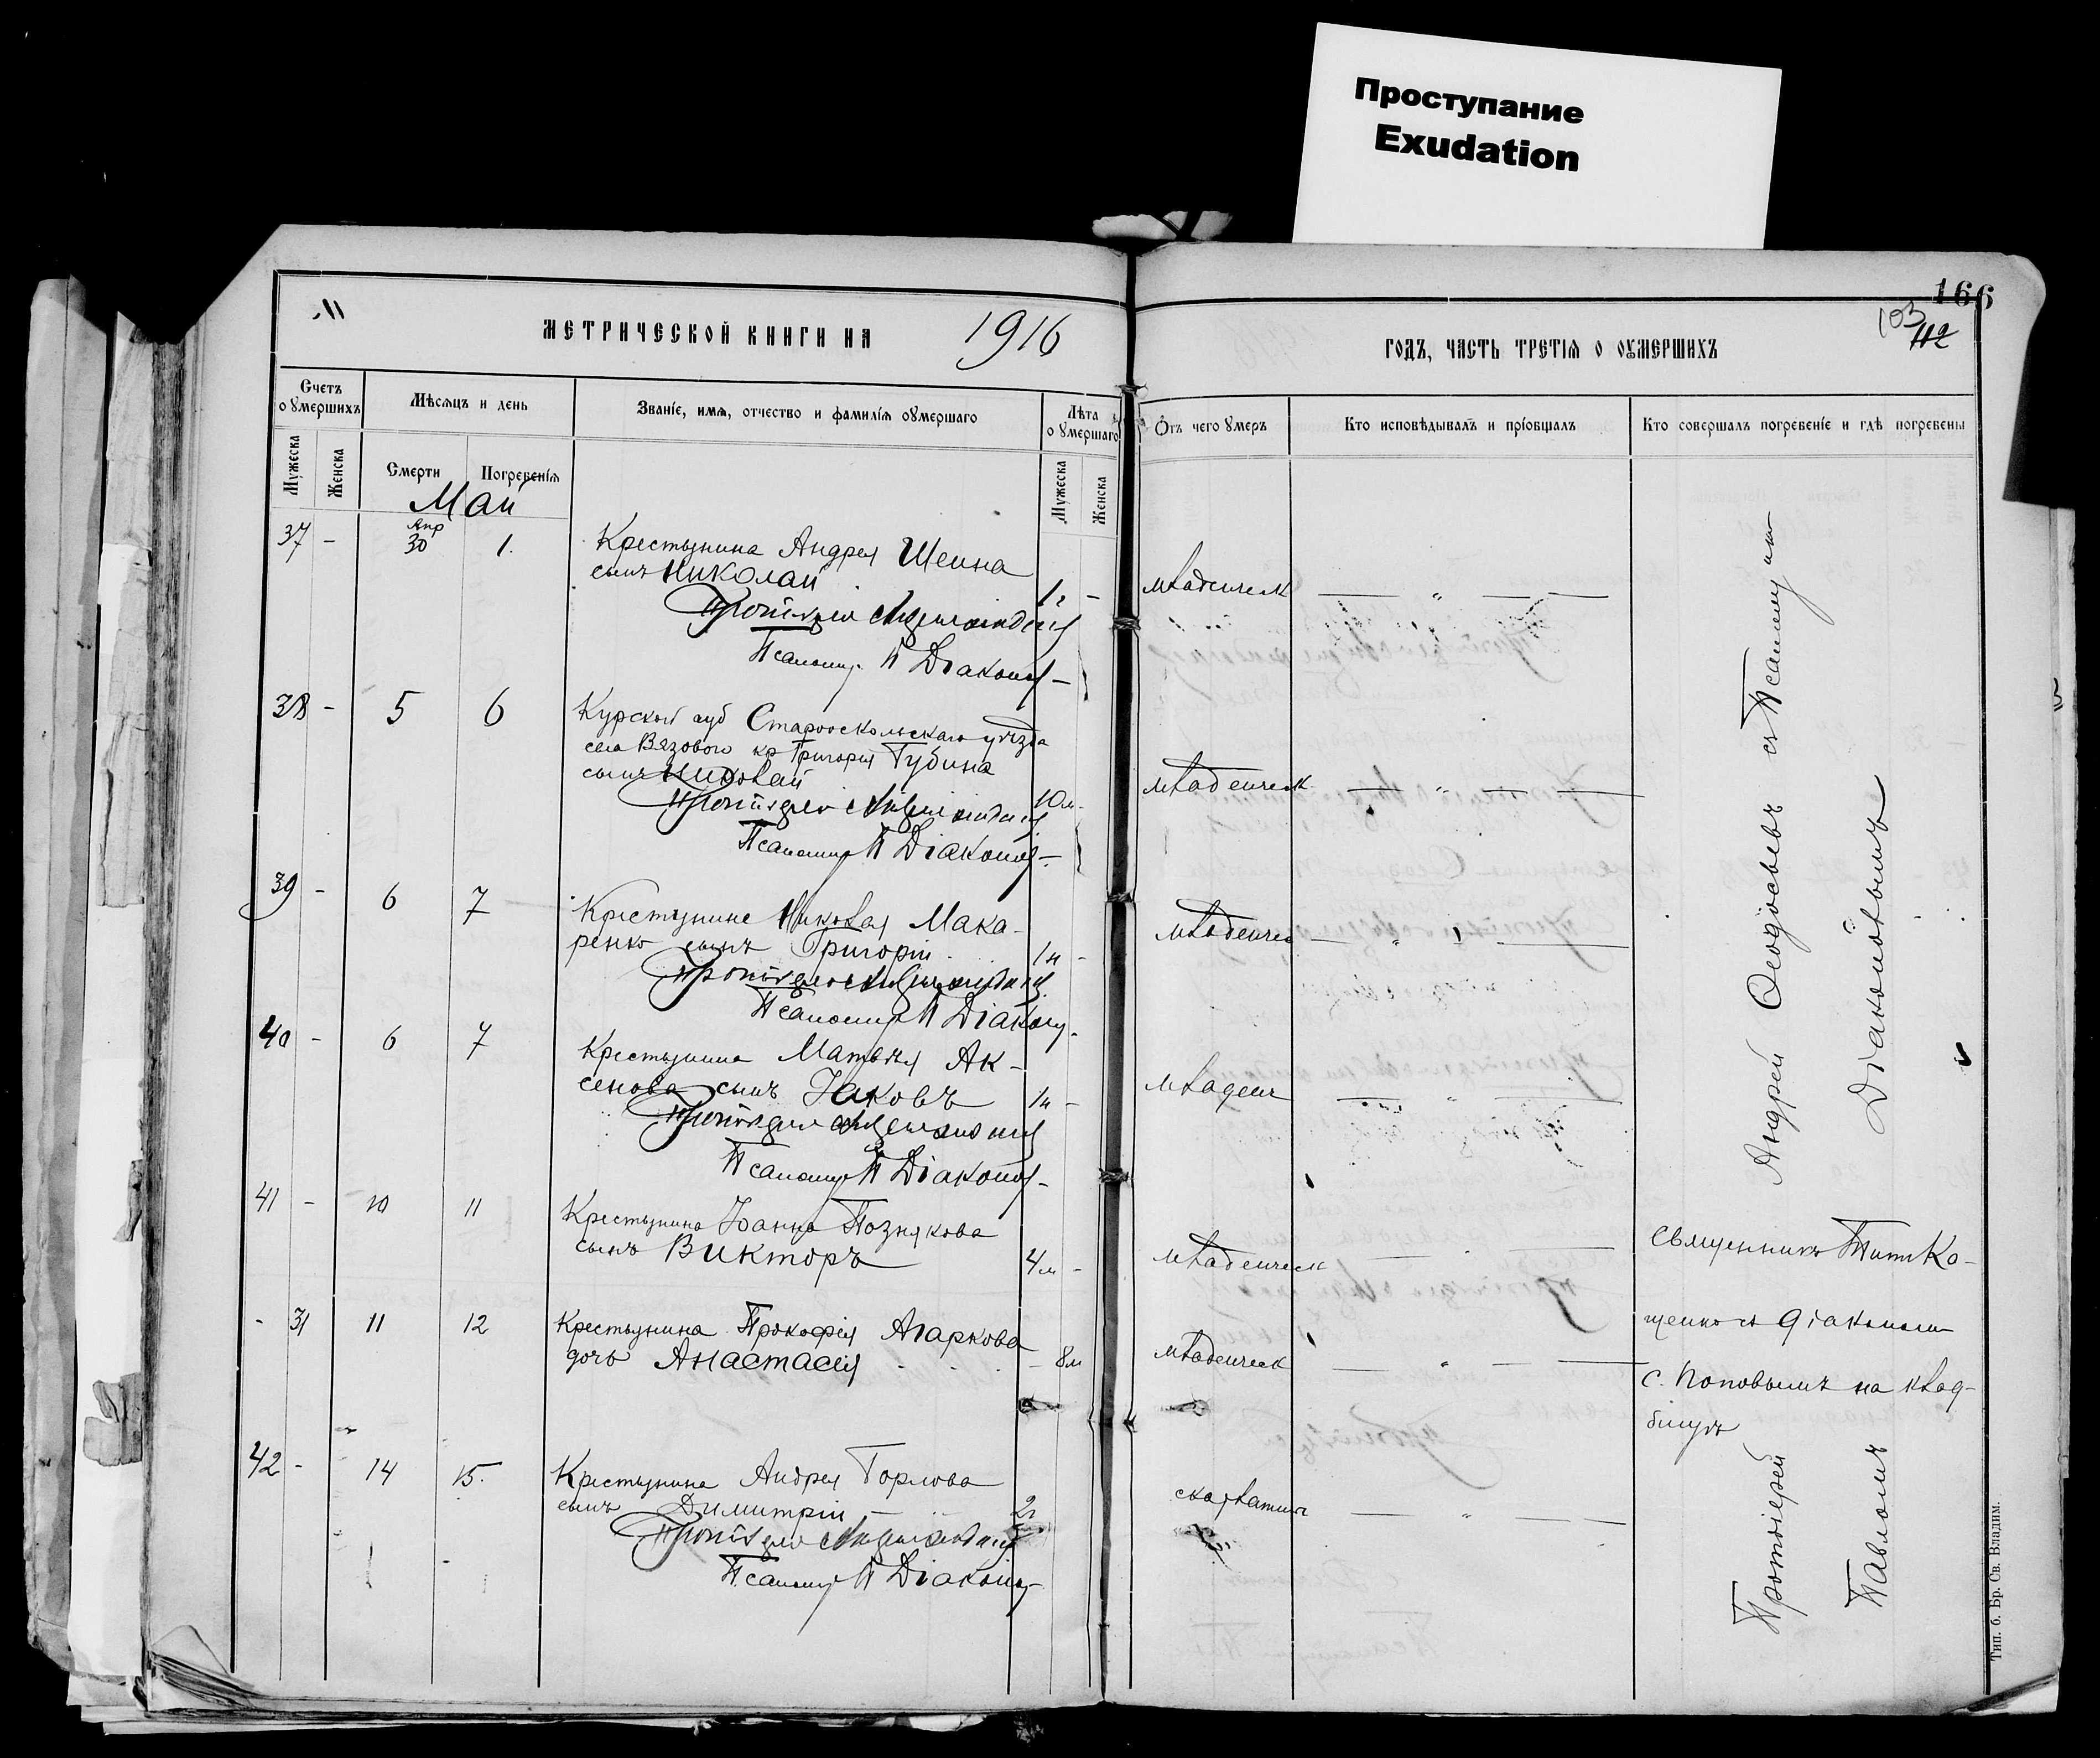 Проступание
Exudation
166
103
112
М
МЕТРИЧЕСКОЙ КНИГИ НА 1916
ГОДЪ, ЧАСТЬ ТРЕТІЯ О ОУМЕРШИХЪ
Счетъ оумершихъ
Мѣсяцъ и день
Званіе, имя, отчество и фамилія оумершаго
Лѣта оумершаго
Отъ чего умеръ
Кто исповѣдывалъ и пріобщалъ
Кто совершалъ погребеніе и гдѣ погребены
Мужеска
Женска
Смерти
Погребенія
Мужеска
Женска
Май
37 - Апр 30 1. Крестьянина Андрея Шеина
сынъ Николай 1г - младенческ
Псаломщ. П Діаконов
38 - 5 6 Курской губ Старооскольскаго уѣзда
села Вязового кр Григорія Губина
сынъ Николай 10м младенческ
Псаломщ П Діаконов
39 - 6 7 Крестьянина Николая Мака-
ренко сынъ Григорій 1н - младенчес
Псаломщ П Діаконов
40 - 6 7 Крестьянина Матвѣя Ак-
сенова сынъ Іаковъ 1н - младен
Псаломщ П Діаконов
41 - 10 11 Крестьянина Іоанна Познякова
сынъ Викторъ 4м - младенческ
- 31 11 12 Крестьянина Прокофія Агаркова
дочь Анастасія - 8м младенческ
42 - 14 15. Крестьянина Андрея Горлова
сынъ Димитрій 2г скарлатина
Псаломщ П Діаконов
Протоіерей Андрей Ѳеодосьевъ съ Псаломщикомъ
Павломъ Діаконовымъ
Священникъ Титъ Ка-
щенко съ діакономъ
С. Поповымъ на клад-
бищѣ
Тип. б. Бр. Св. Владим.